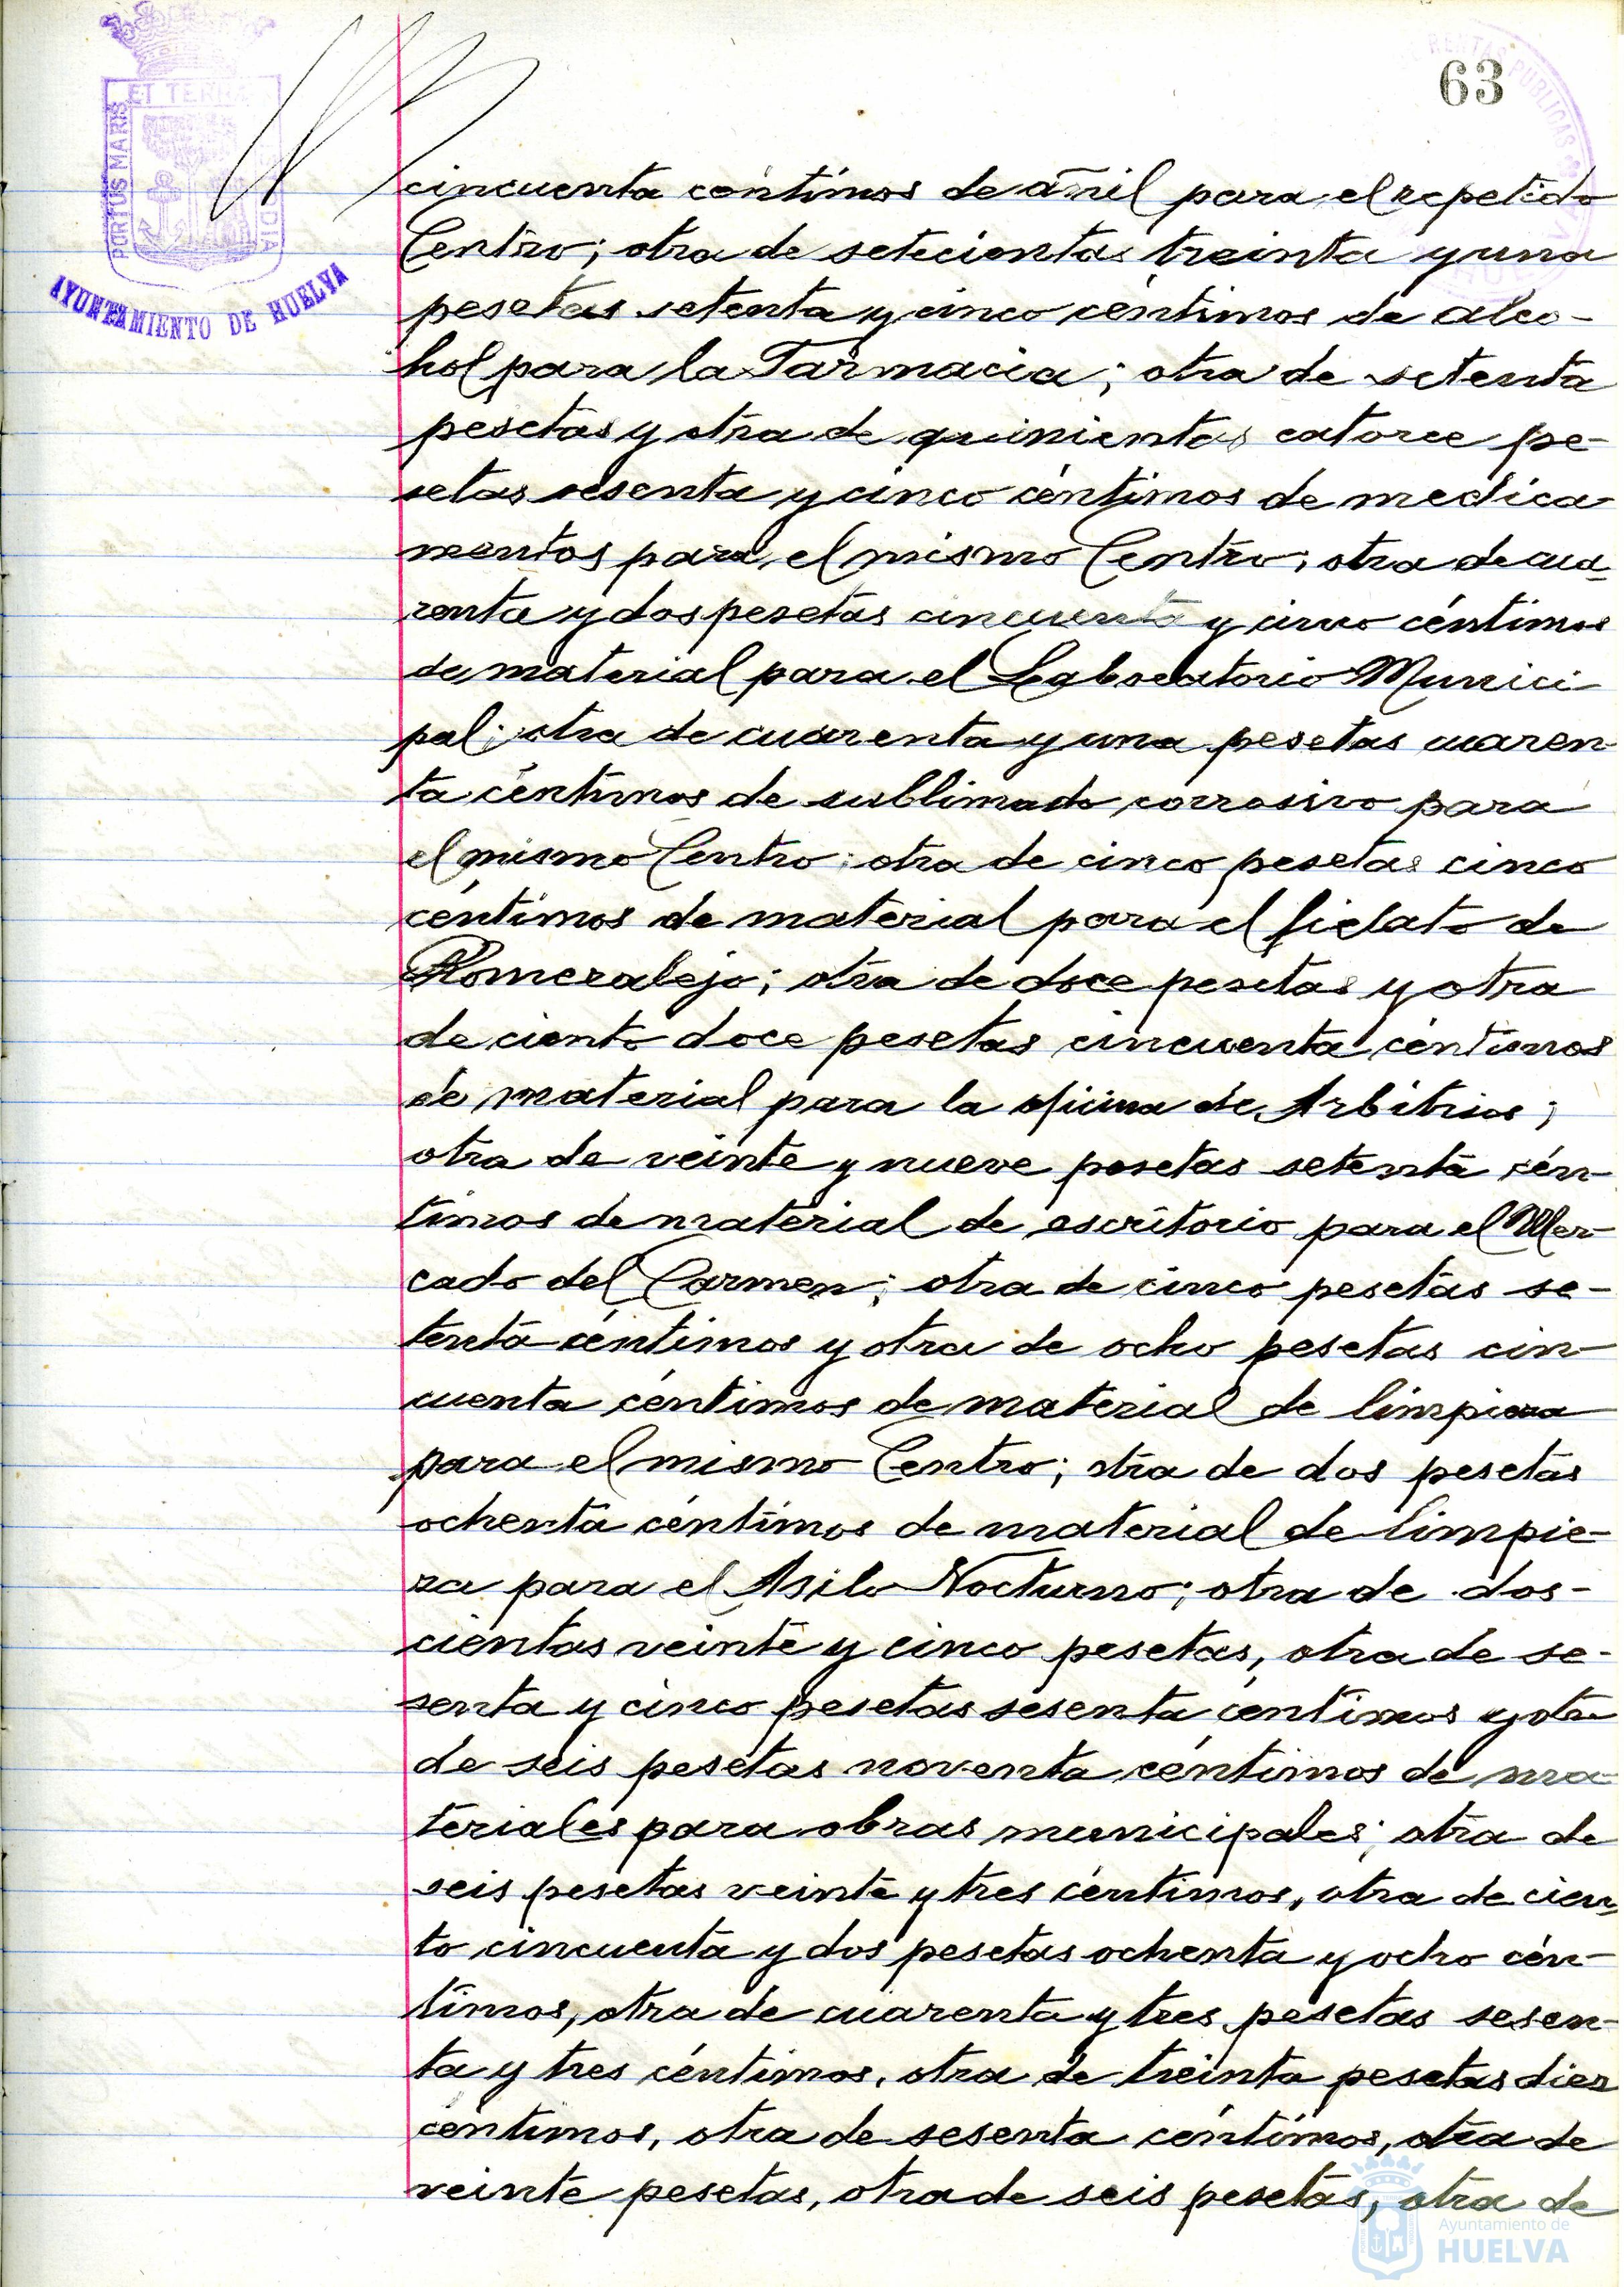 63
RENTAS PUBLICAS
ET TERRAE
PORTUS MARIS
CUSTODIA
AYUNTAMIENTO DE HUELVA
cincuenta céntimos de añil para el repetido
Centro; otra de setecientas treinta y una
pesetas setenta y cinco céntimos de alco-
hol para la Farmacia; otra de setenta
pesetas y otra de quinientas catorce pe-
setas sesenta y cinco céntimos de medica-
mentos para el mismo Centro; otra de cua-
renta y dos pesetas cincuenta y cinco céntimos
de material para el Laboratorio Munici
pal; otra de cuarenta y una pesetas cuaren-
ta céntimos de sublimado corrosivo para
el mismo Centro; otra de cinco pesetas cinco
céntimos de material para el fielato de
Romeralejo; otra de doce pesetas y otra
de ciento doce pesetas cincuenta céntimos
de material para la oficina de Arbitrios;
otra de veinte y nueve pesetas setenta cén-
timos de material de escritorio para el Mer-
cado del Carmen; otra de cinco pesetas se-
tenta céntimos y otra de ocho pesetas cin-
cuenta céntimos de material de limpieza
para el mismo Centro; otra de dos pesetas
ochenta céntimos de material de limpie-
za para el Asilo Nocturno; otra de dos-
cientas veinte y cinco pesetas, otra de se-
senta y cinco pesetas sesenta céntimos y otra
de seis pesetas noventa céntimos de ma-
teriales para obras municipales; otra de
seis pesetas veinte y tres céntimos, otra de cien-
to cincuenta y dos pesetas ochenta y ocho cén-
timos, otra de cuarenta y tres pesetas sesen-
ta y tres céntimos, otra de treinta pesetas diez
céntimos, otra de sesenta céntimos, otra de
veinte pesetas, otra de seis pesetas, otra de
Ayuntamiento de
HUELVA